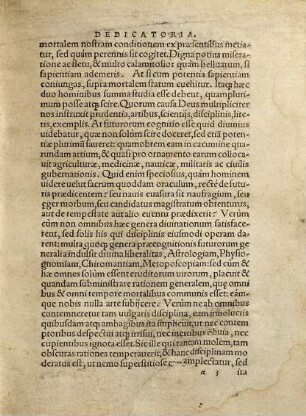 DEDICATORIA.
mortalem nostram conditionem ex præsentibus metia-
tur, sed quàm perennis sit cogitet. Digna potius miserea-
tione ac fletu, & multo calamitosior quàm belluarum, si
sapientiam ademeris. At si cum potentia sapientiam
coniungas, supra mortalem statum euehitur. Itaq; hæc
duo hominibus summa studia esse debent, quamplurí-
mum posse atq; scire. Quorum causa Deus multipliciter
nos instruxit prudentia, artibus, scientijs, disciplinis, lite-
ris, exemplis. At futurorum cognitio esse quid diuinius
uidebatur, quæ non solùm scire doceret, sed etiã poten-
tiæ plurimũ saueret: quamobrem eam in cacumine qua-
rundam artium, & quasi pro ornamento earum colloca-
uit agriculturæ, medicinæ, nauticæ, militaris ac ciuilis
gubernationis. Quid enim speciosius, quàm hominem
uidere uelut sacrum quoddam oraculum, rectè de futu-
ris prædicentem: seu euasurus sit quis naufragium, seu
æger morbum, seu candidatus magistratum obtenturus,
aut de tempestate aut alio euentu prædixerit? Verùm
cùm non omnibus hæc genera diuinationum satisface-
rent, sed solis his qui disciplinis eiusmodi operam da-
rent: multa quoq; genera præcognitionis futurorum ge-
neralia indulsit diuina liberalitas, Astrologiam, Physio-
gnomiam, Chiromantiam, Metoposcopiam: sed cum &
hæ omnes solùm essent eruditorum uirorum, placuit &
quandam subministrare rationem generalem, quæ omni
bus & omni tempore mortalibus communis esset: eam-
que nobis nulla arte subijcere. Verùm ne ab omnibus
contemneretur tam uulgaris disciplina, eam inuolucris
quibusdam atq; ambagibus ita implicuit, ut nec contem
ptoribus despectui atq; irrisui, nec inertibus obuia, nec
cupientibus ignota esset. Sic ille qui tantam molem, tam
obscuras rationes temperauerit, & hanc disciplinam mo
deratus est, ut nemo superstitiose amplectatur, sed
ita